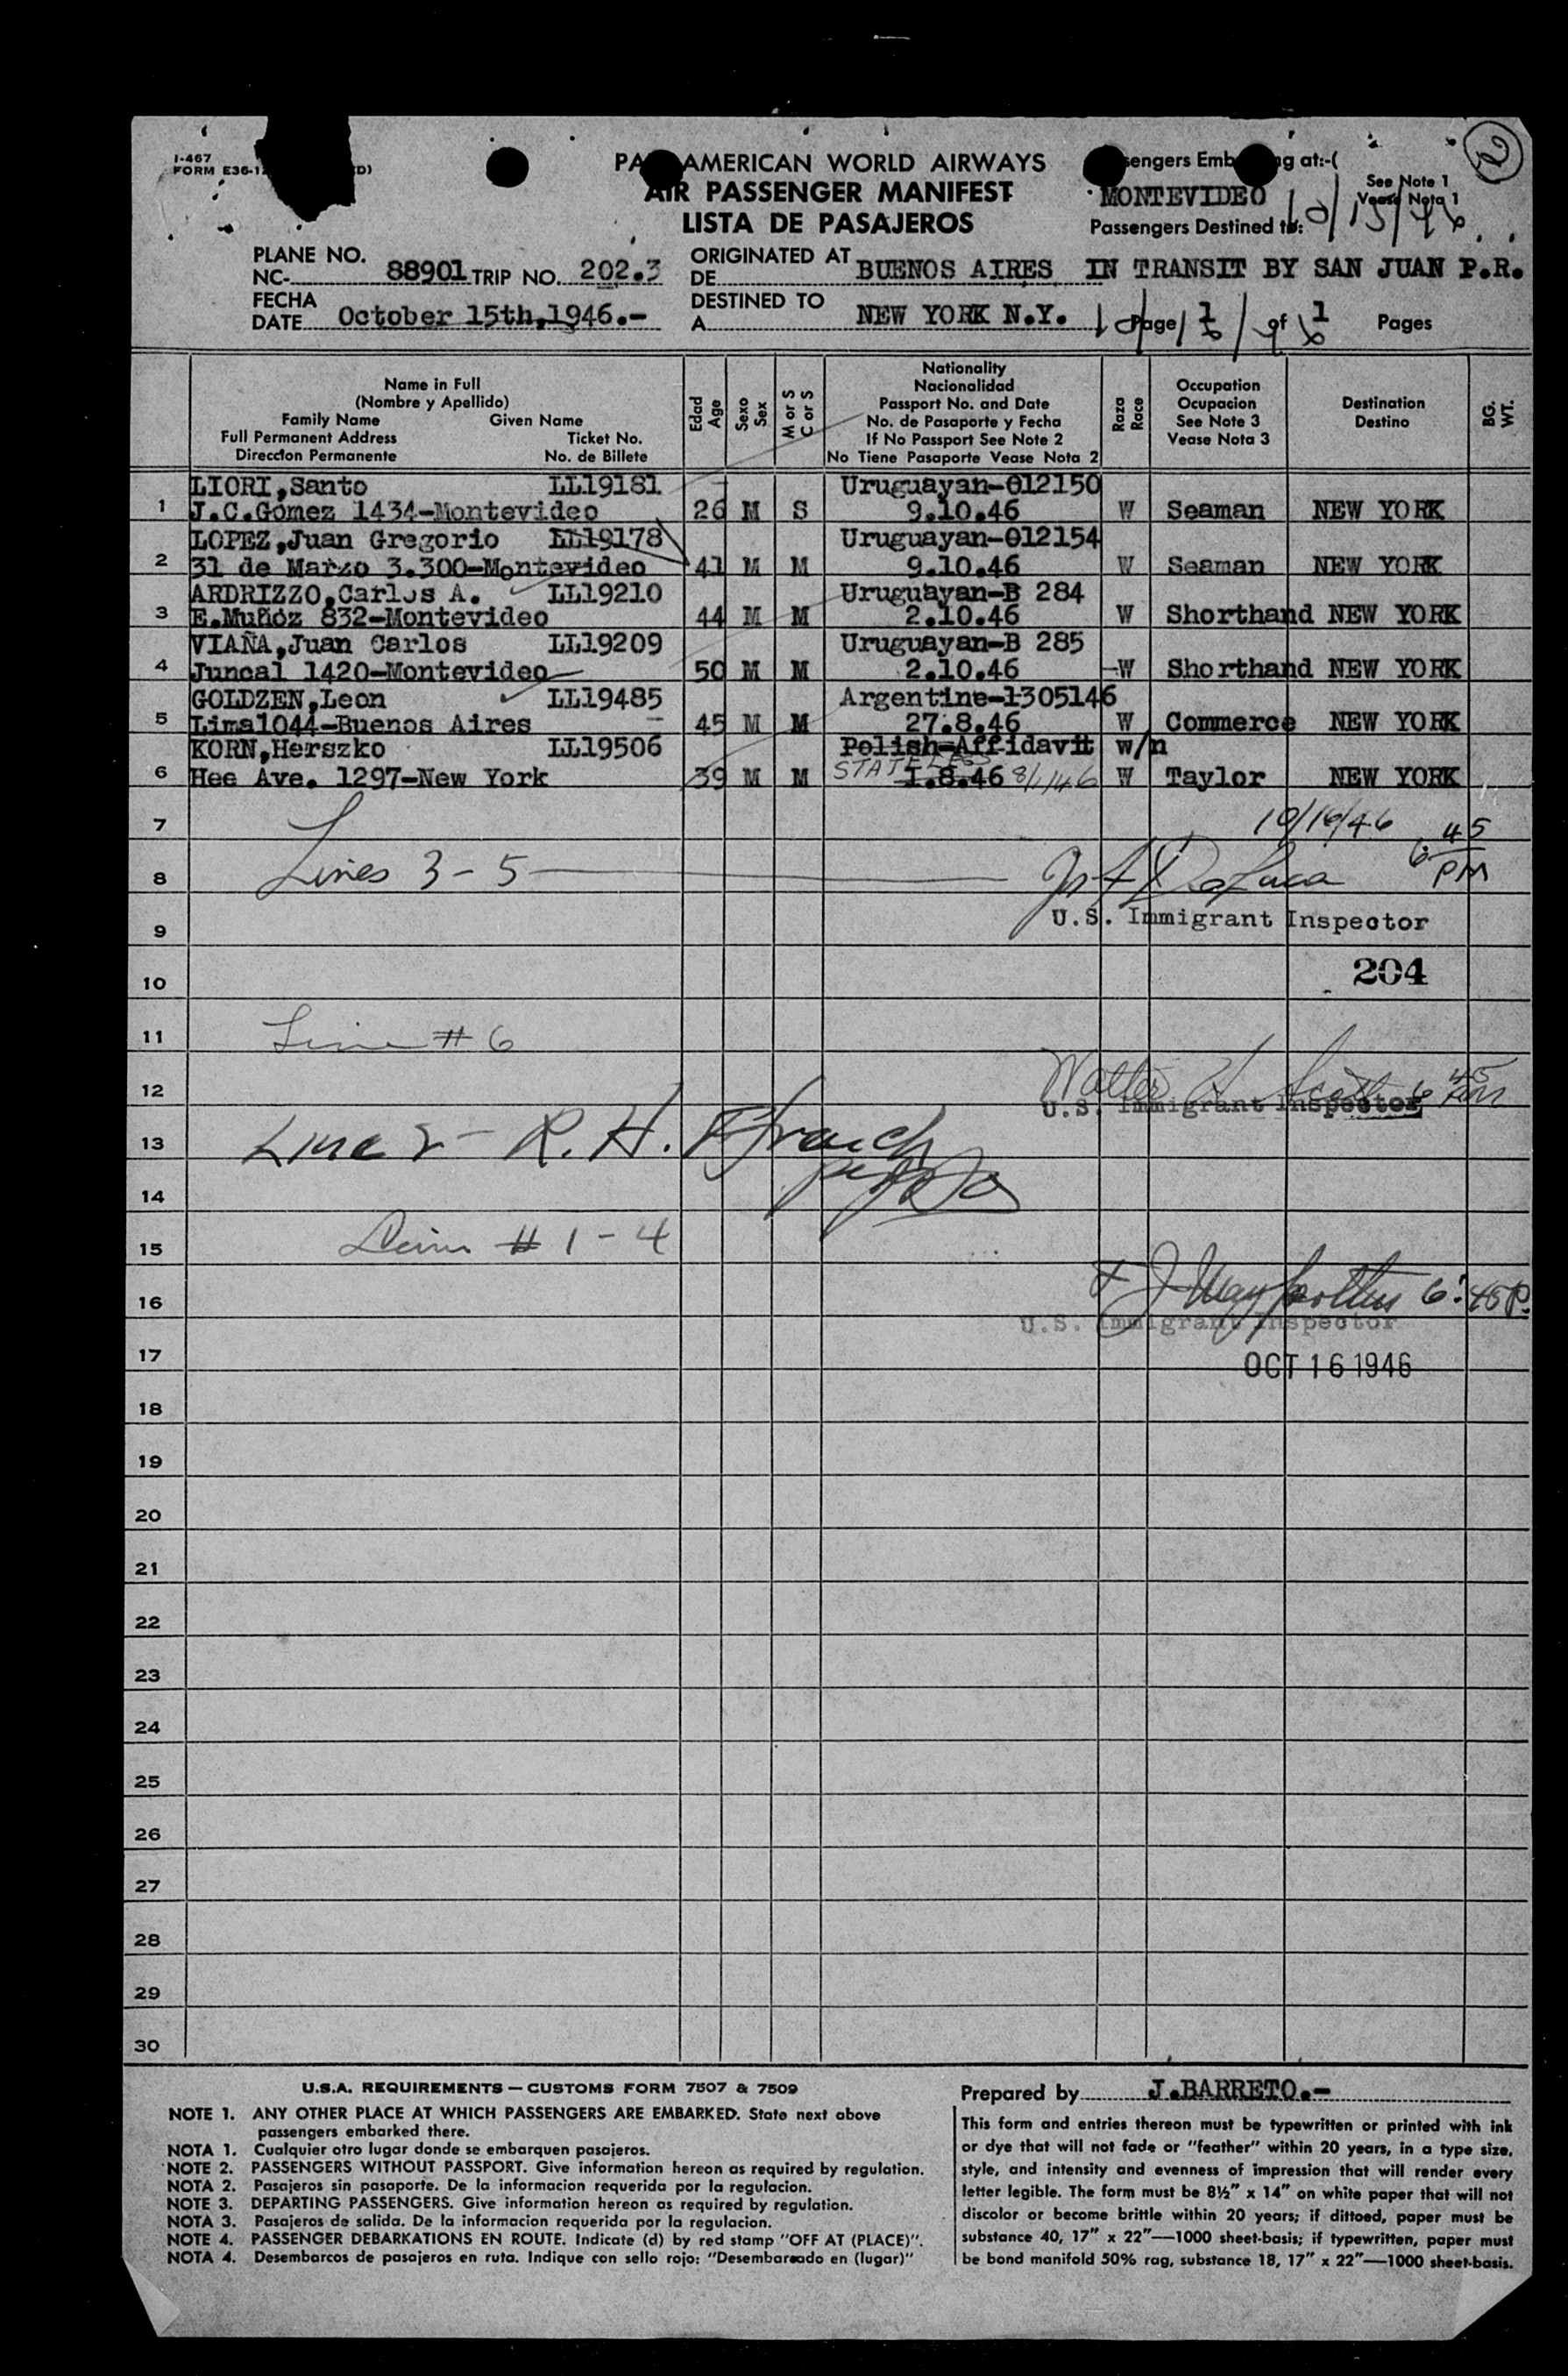 I-467
FORM E36-1
D)
PA AMERICAN WORLD AIRWAYS
AIR PASSENGER MANIFEST
LISTA DE PASAJEROS
sengers Emb ng at:-(
MONTEVIDEO
See Note 1
Vease Nota 1
10/15/46
Passengers Destined to:
2
PLANE NO.
NC- 88901 TRIP NO. 202.3
ORIGINATED AT
DE BUENOS AIRES IN TRANSIT BY SAN JUAN P.R.
FECHA
DATE October 15th,1946.-
DESTINED TO
A NEW YORK N.Y.
Page 1 of 1 Pages
Name in Full
(Nombre y Apellido)
Family Name Given Name
Full Permanent Address Ticket No.
Direccion Permanente No. de Billete
Edad
Age
Sexo
Sex
M or S
C or S
Nationality
Nacionalidad
Passport No. and Date
No. de Pasaporte y Fecha
If No Passport See Note 2
No Tiene Pasaporte Vease Nota 2
Raza
Race
Occupation
Ocupacion
See Note 3
Vease Nota 3
Destination
Destino
BG.
WT.
LIORI,Santo LL19181 Uruguayan-012150
1 J.C.Gomez 1434-Montevideo 26 M S 9.10.46 W Seaman NEW YORK
LOPEZ,Juan Gregorio LL19178 Uruguayan-012154
2 31 de Marzo 3.300-Montevideo 41 M M 9.10.46 W Seaman NEW YORK
ARDRIZZO,Carlos A. LL19210 Uruguayan-B 284
3 E.Muñóz 832-Montevideo 44 M M 2.10.46 W Shorthand NEW YORK
VIAÑA,Juan Carlos LL19209 Uruguayan-B 285
4 Juncal 1420-Montevideo 50 M M 2.10.46 W Shorthand NEW YORK
GOLDZEN,Leon LL19485 Argentine-1305146
5 Lima1044-Buenos Aires 45 M M 27.8.46 W Commerce NEW YORK
KORN,Herszko LL19506 Polish-Affidavit w/n
STATELESS
6 Hee Ave. 1297-New York 39 M M 1.8.46 8/1/46 W Taylor NEW YORK
7 10/16/46 6 45 PM
8 Lines 3-5
9 U.S. Immigrant Inspector
10 204
11 Line #6
12 Walter H Scott 6 45 PM
U.S. Immigrant Inspector
13 Line 2 - R. H.
14
15 # 1-4
16 6:45 P.
U.S. Immigrant Inspector
17 OCT 16 1946
18
19
20
21
22
23
24
25
26
27
28
29
30
U.S.A. REQUIREMENTS — CUSTOMS FORM 7507 & 7509
NOTE 1. ANY OTHER PLACE AT WHICH PASSENGERS ARE EMBARKED. State next above
passengers embarked there.
NOTA 1. Cualquier otro lugar donde se embarquen pasajeros.
NOTE 2. PASSENGERS WITHOUT PASSPORT. Give information hereon as required by regulation.
NOTA 2. Pasajeros sin pasaporte. De la informacion requerida por la regulacion.
NOTE 3. DEPARTING PASSENGERS. Give information hereon as required by regulation.
NOTA 3. Pasajeros de salida. De la informacion requerida por la regulacion.
NOTE 4. PASSENGER DEBARKATIONS EN ROUTE. Indicate (d) by red stamp "OFF AT (PLACE)".
NOTA 4. Desembarcos de pasajeros en ruta. Indique con sello rojo: "Desembarcado en (lugar)"
Prepared by J.BARRETO.-
This form and entries thereon must be typewritten or printed with ink
or dye that will not fade or "feather" within 20 years, in a type size,
style, and intensity and evenness of impression that will render every
letter legible. The form must be 8½" x 14" on white paper that will not
discolor or become brittle within 20 years; if dittoed, paper must be
substance 40, 17" x 22"—1000 sheet-basis; if typewritten, paper must
be bond manifold 50% rag, substance 18, 17" x 22"—1000 sheet-basis.